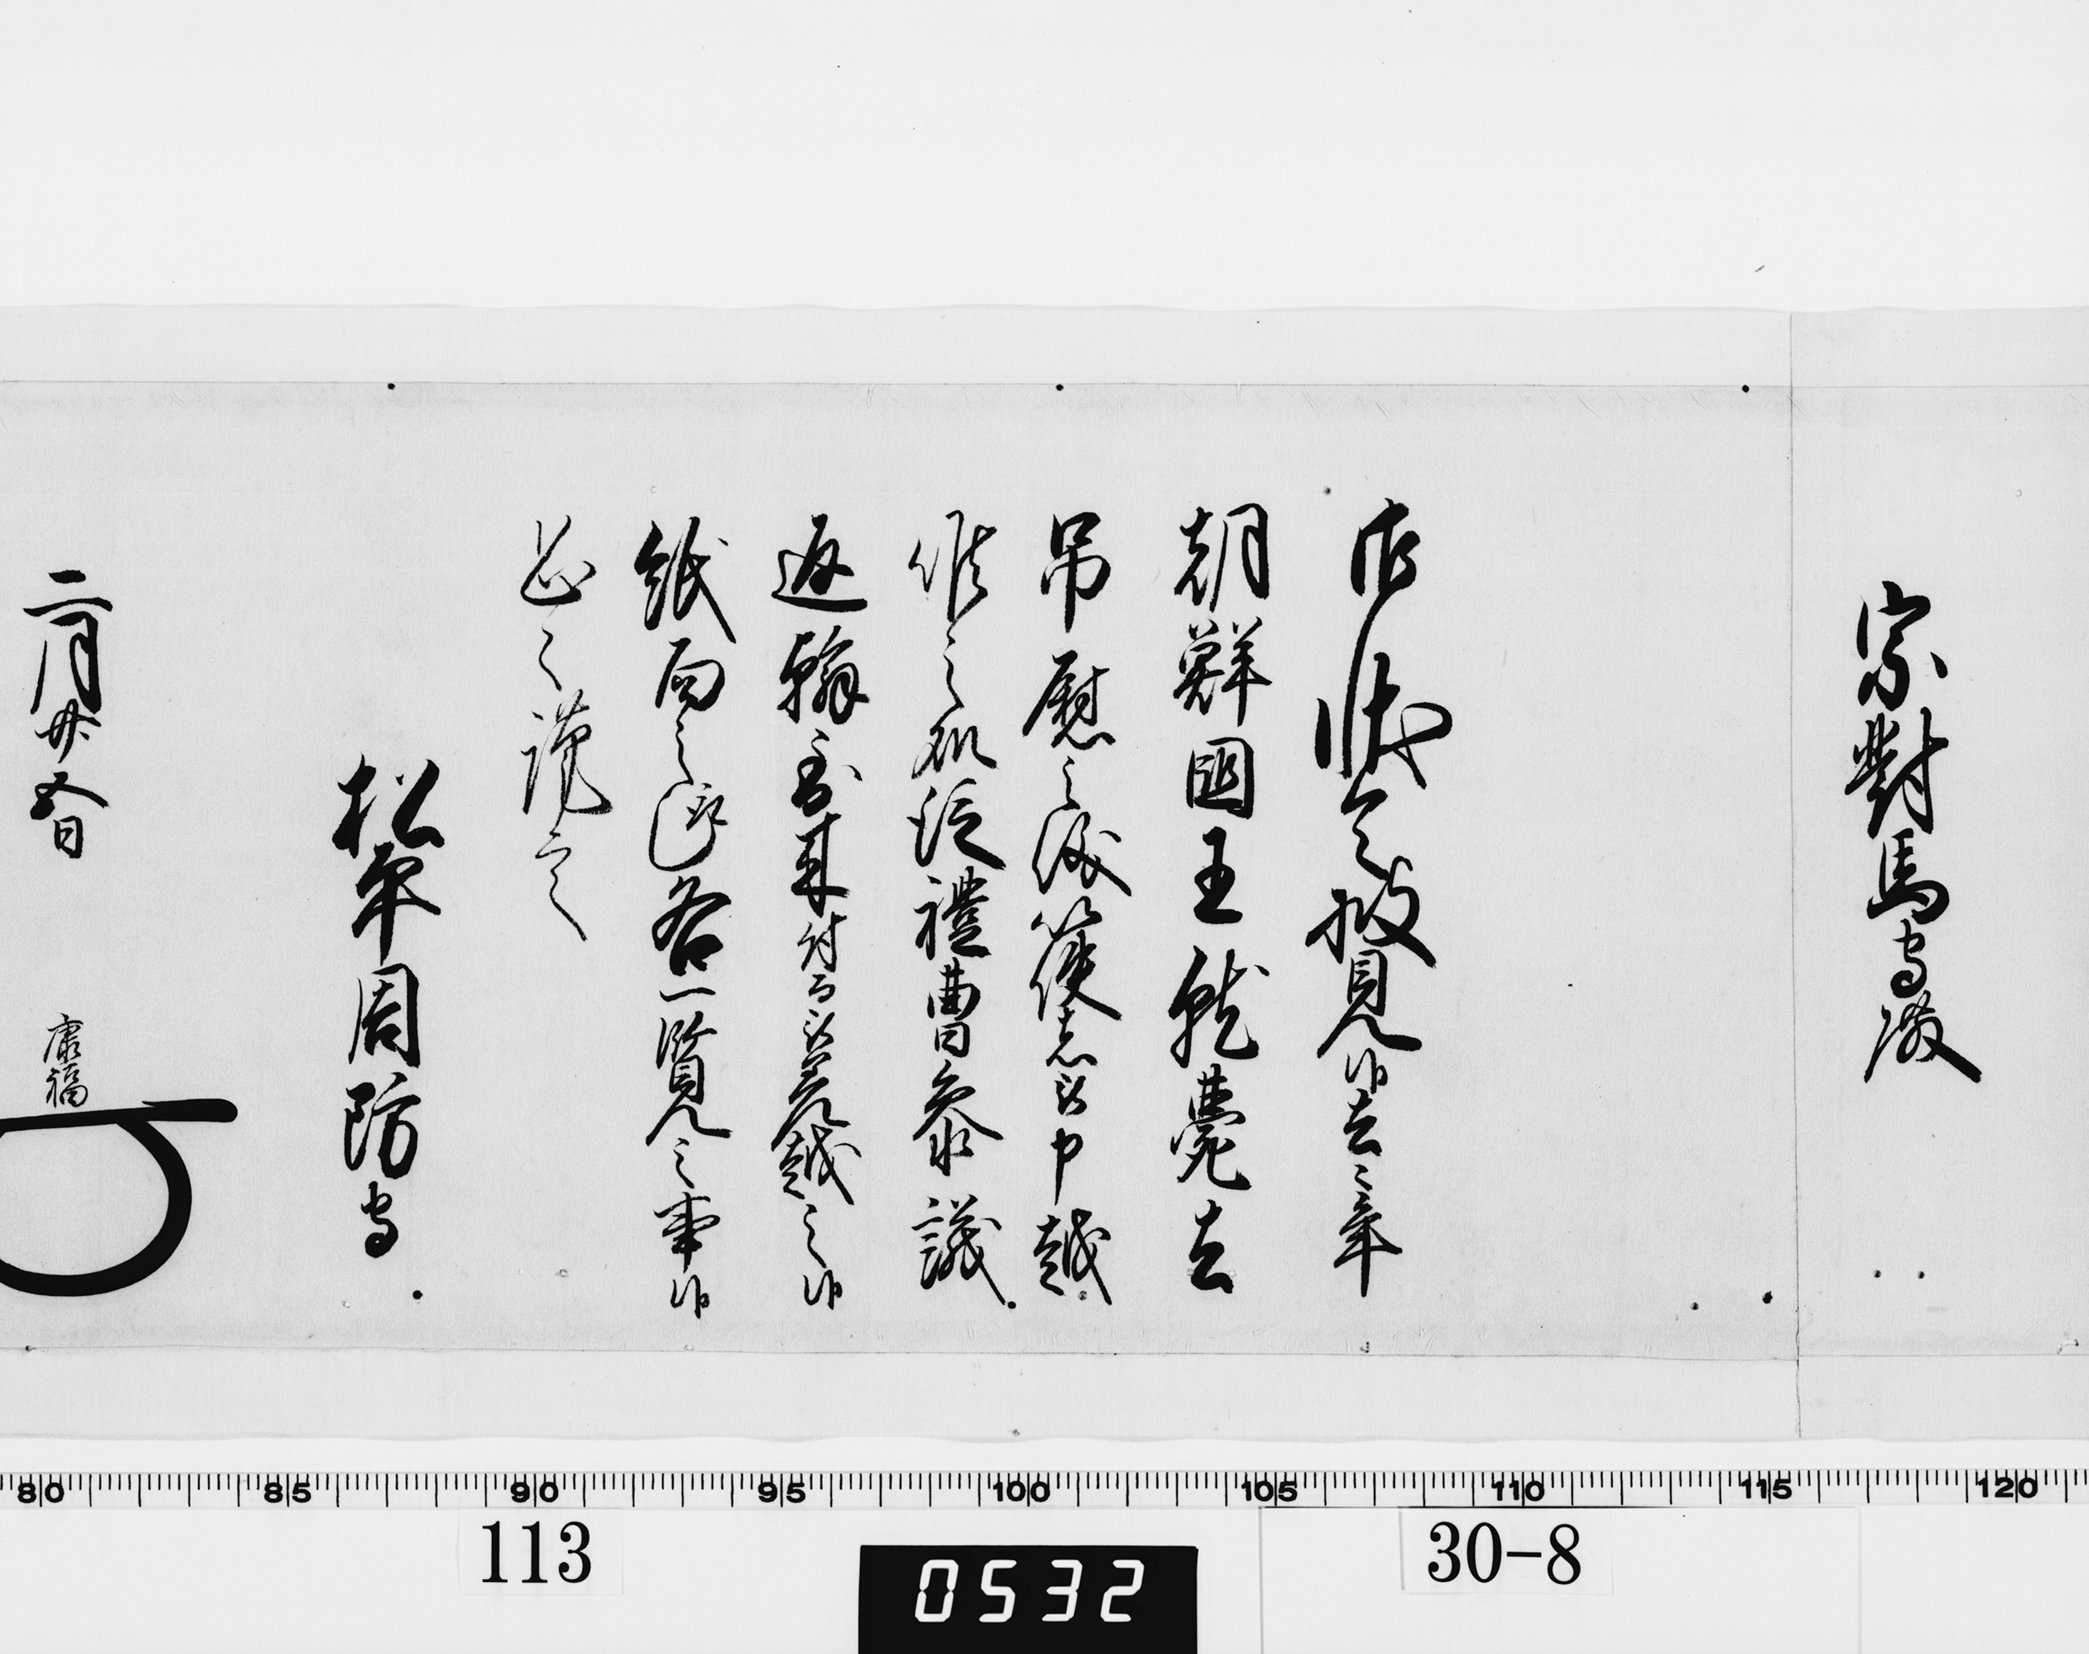 宗對馬守殿
御状令披見候去々年
朝鮮国王就薨去
吊慰之儀䇳使者被申越
候之處従禮曹参議
返翰到来付而被差越之候
紙面之趣各一覧之事候
恐々謹言
松平周防守
二月廿五日
康福
80 85 90 95 100 105 110 115 120
113
0532
30-8